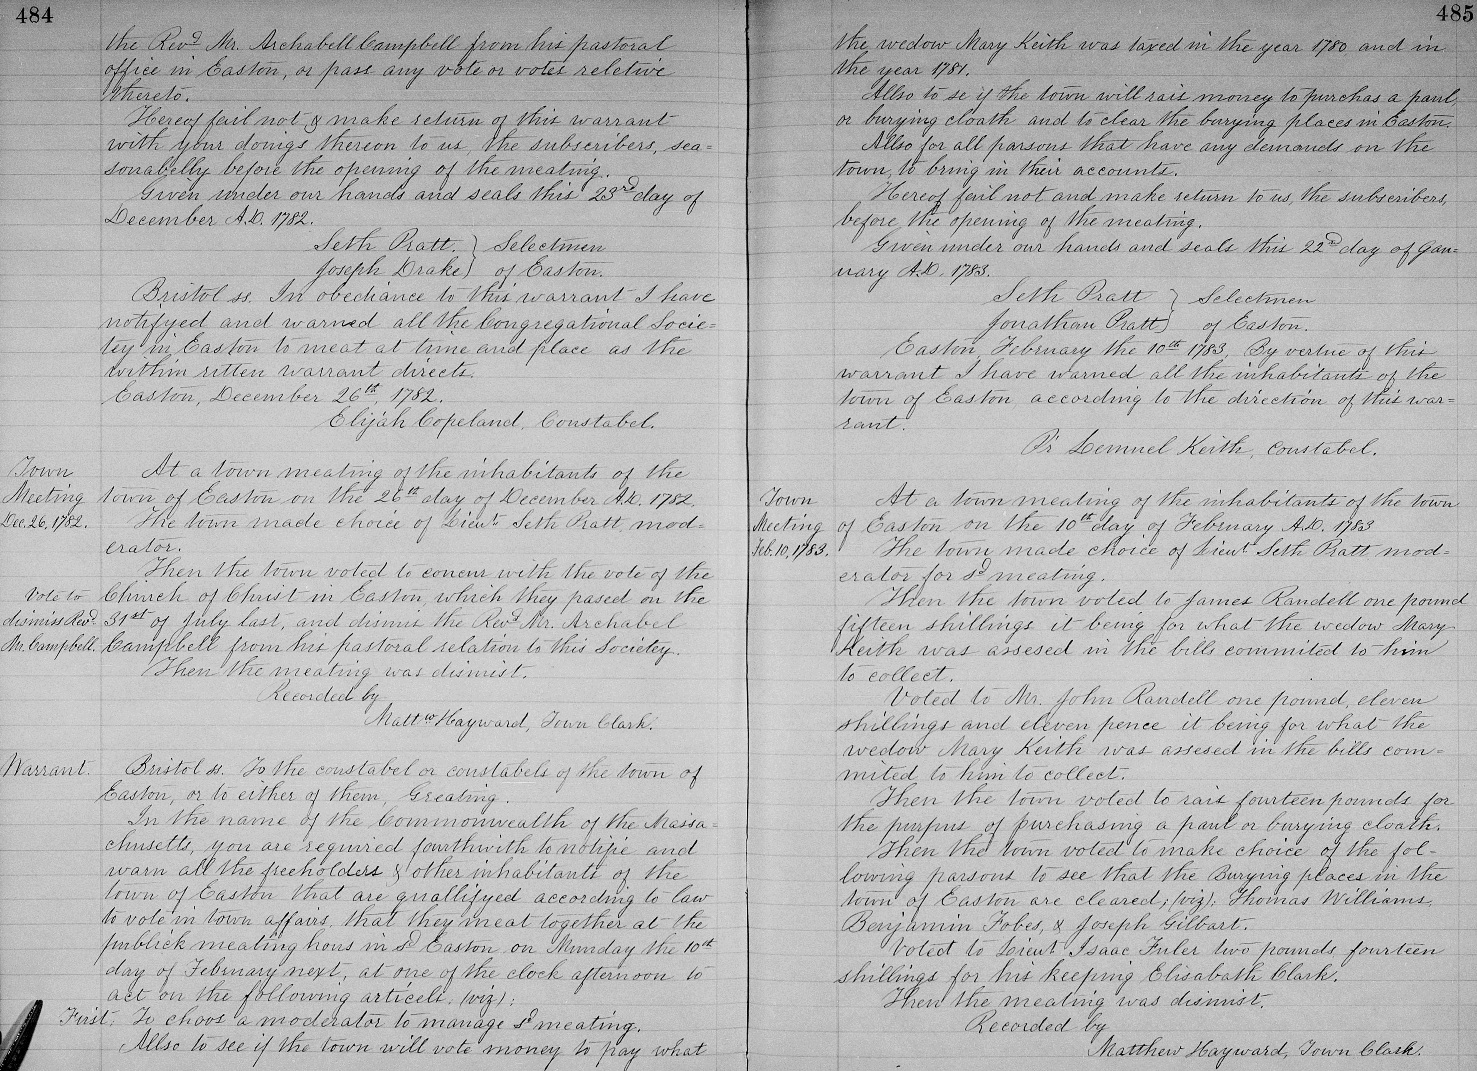 484
the Revd. Mr. Archabell Campbell from his pastoral
office in Easton, or pass any vote or votes reletive
thereto.
Hereof fail not & make return of this warrant
with your doings thereon to us, the subscribers, sea=
sonabelly before the opening of the meating.
Given under our hands and seals this 23rd day of
December A.D. 1782.
Seth Pratt. } Selectmen
Joseph Drake } of Easton.
Bristol ss. In obediance to this warrant I have
notifyed and warned all the Congregational Socie=
tey in Easton to meat at time and place as the
within ritten warrant directs.
Easton, December 26th, 1782.
Elijah Copeland, Constabel.
Town
Meeting
Dec. 26, 1782.
At a town meating of the inhabitants of the
town of Easton on the 26th day of December A.D. 1782
The town made choice of Lieut Seth Pratt mod=
erator.
Then the town voted to concur with the vote of the
Vote to
dismiss Revd.
Mr. Campbell.
Church of Christ in Easton, which they pased on the
31st of July last, and dismis the Revd. Mr. Archabel
Campbell from his pastoral relation to this Societey.
Then the meating was dismist.
Recorded by
Mattw Hayward, Town Clark.
Warrant.
Bristol ss. To the constabel or constabels of the town of
Easton, or to either of them, Greating.
In the name of the Commonwealth of the Massa=
chusetts, you are required fourthwith to notife and
warn all the freeholders & other inhabitants of the
town of Easton that are quallifyed according to law
to vote in town affairs, that they meat together at the
publick meating hous in sd Easton on Munday the 10th
day of February next, at one of the clock afternoon to
act on the following articels. (viz):
First. To choos a moderator to manage sd meating.
Allso to see if the town will vote money to pay what
485
the wedow Mary Keith was taxed in the year 1780 and in
the year 1781.
Allso to se if the town will rais money to purchas a paul
or burying cloath and to clear the burying places in Easton.
Allso for all parsons that have any demands on the
town, to bring in their accounts.
Hereof fail not and make return to us, the subscribers,
before the opening of the meating.
Given under our hands and seals this 22d day of Jan=
uary A.D. 1783.
Seth Pratt } Selectmen
Jonathan Pratt } of Easton.
Easton, February the 10th 1783. By vertue of this
warrant I have warned all the inhabitants of the
town of Easton according to the direction of this war=
rant.
Pr Lemuel Keith, constabel.
Town
Meeting
Feb. 10, 1783.
At a town meating of the inhabitants of the town
of Easton on the 10th day of February A.D. 1783
The town made choice of Lieut Seth Pratt mod=
erator for sd meating.
Then the town voted to James Randell one pound
fifteen shillings it being for what the wedow Mary
Keith was assesed in the bills commited to him
to collect.
Voted to Mr. John Randell one pound, eleven
shillings and eleven pence it being for what the
wedow Mary Keith was assesed in the bills com=
mited to him to collect.
Then the town voted to rais fourteen pounds for
the purpus of purchasing a paul or burying cloath.
Then the town voted to make choice of the fol-
lowing parsons to see that the Burying places in the
town of Easton are cleared; (viz): Thomas Williams,
Benjamin Fobes, & Joseph Gilbart.
Voted to Lieut Isaac Fuler two pounds fourteen
shillings for his keeping Elisabath Clark.
Then the meating was dismist.
Recorded by
Matthew Hayward, Town Clark.